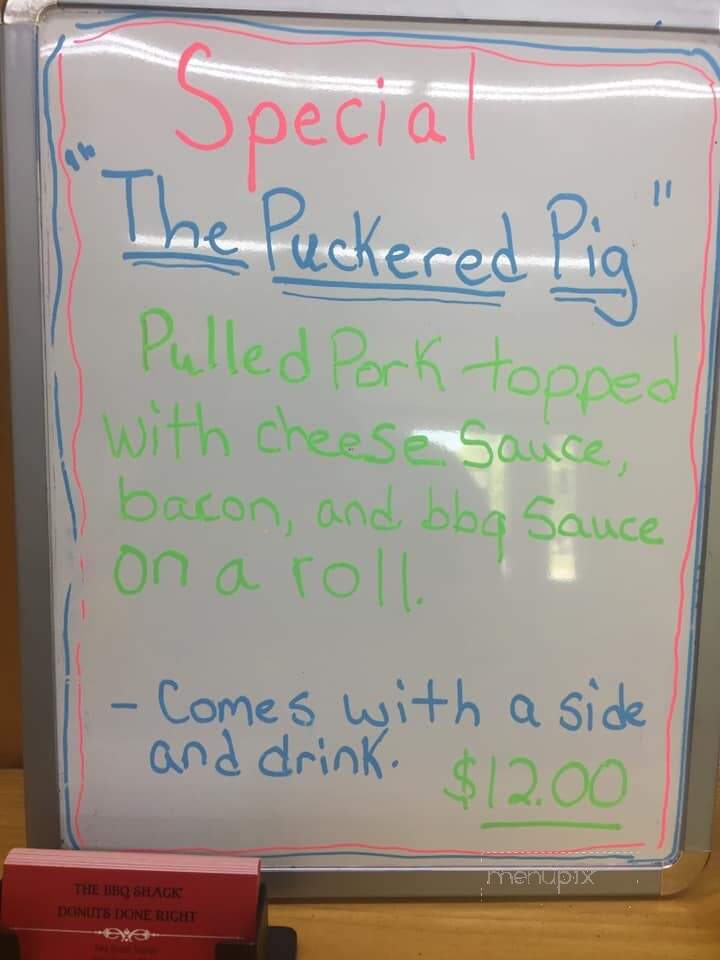 Special
"The Puckered Pig"
Pulled Pork topped
with cheese sauce,
bacon, and bbq sauce
on a roll.
- Comes with a side
and drink.
$12.00
menupix
THE BBQ SHACK
DONUTS DONE RIGHT